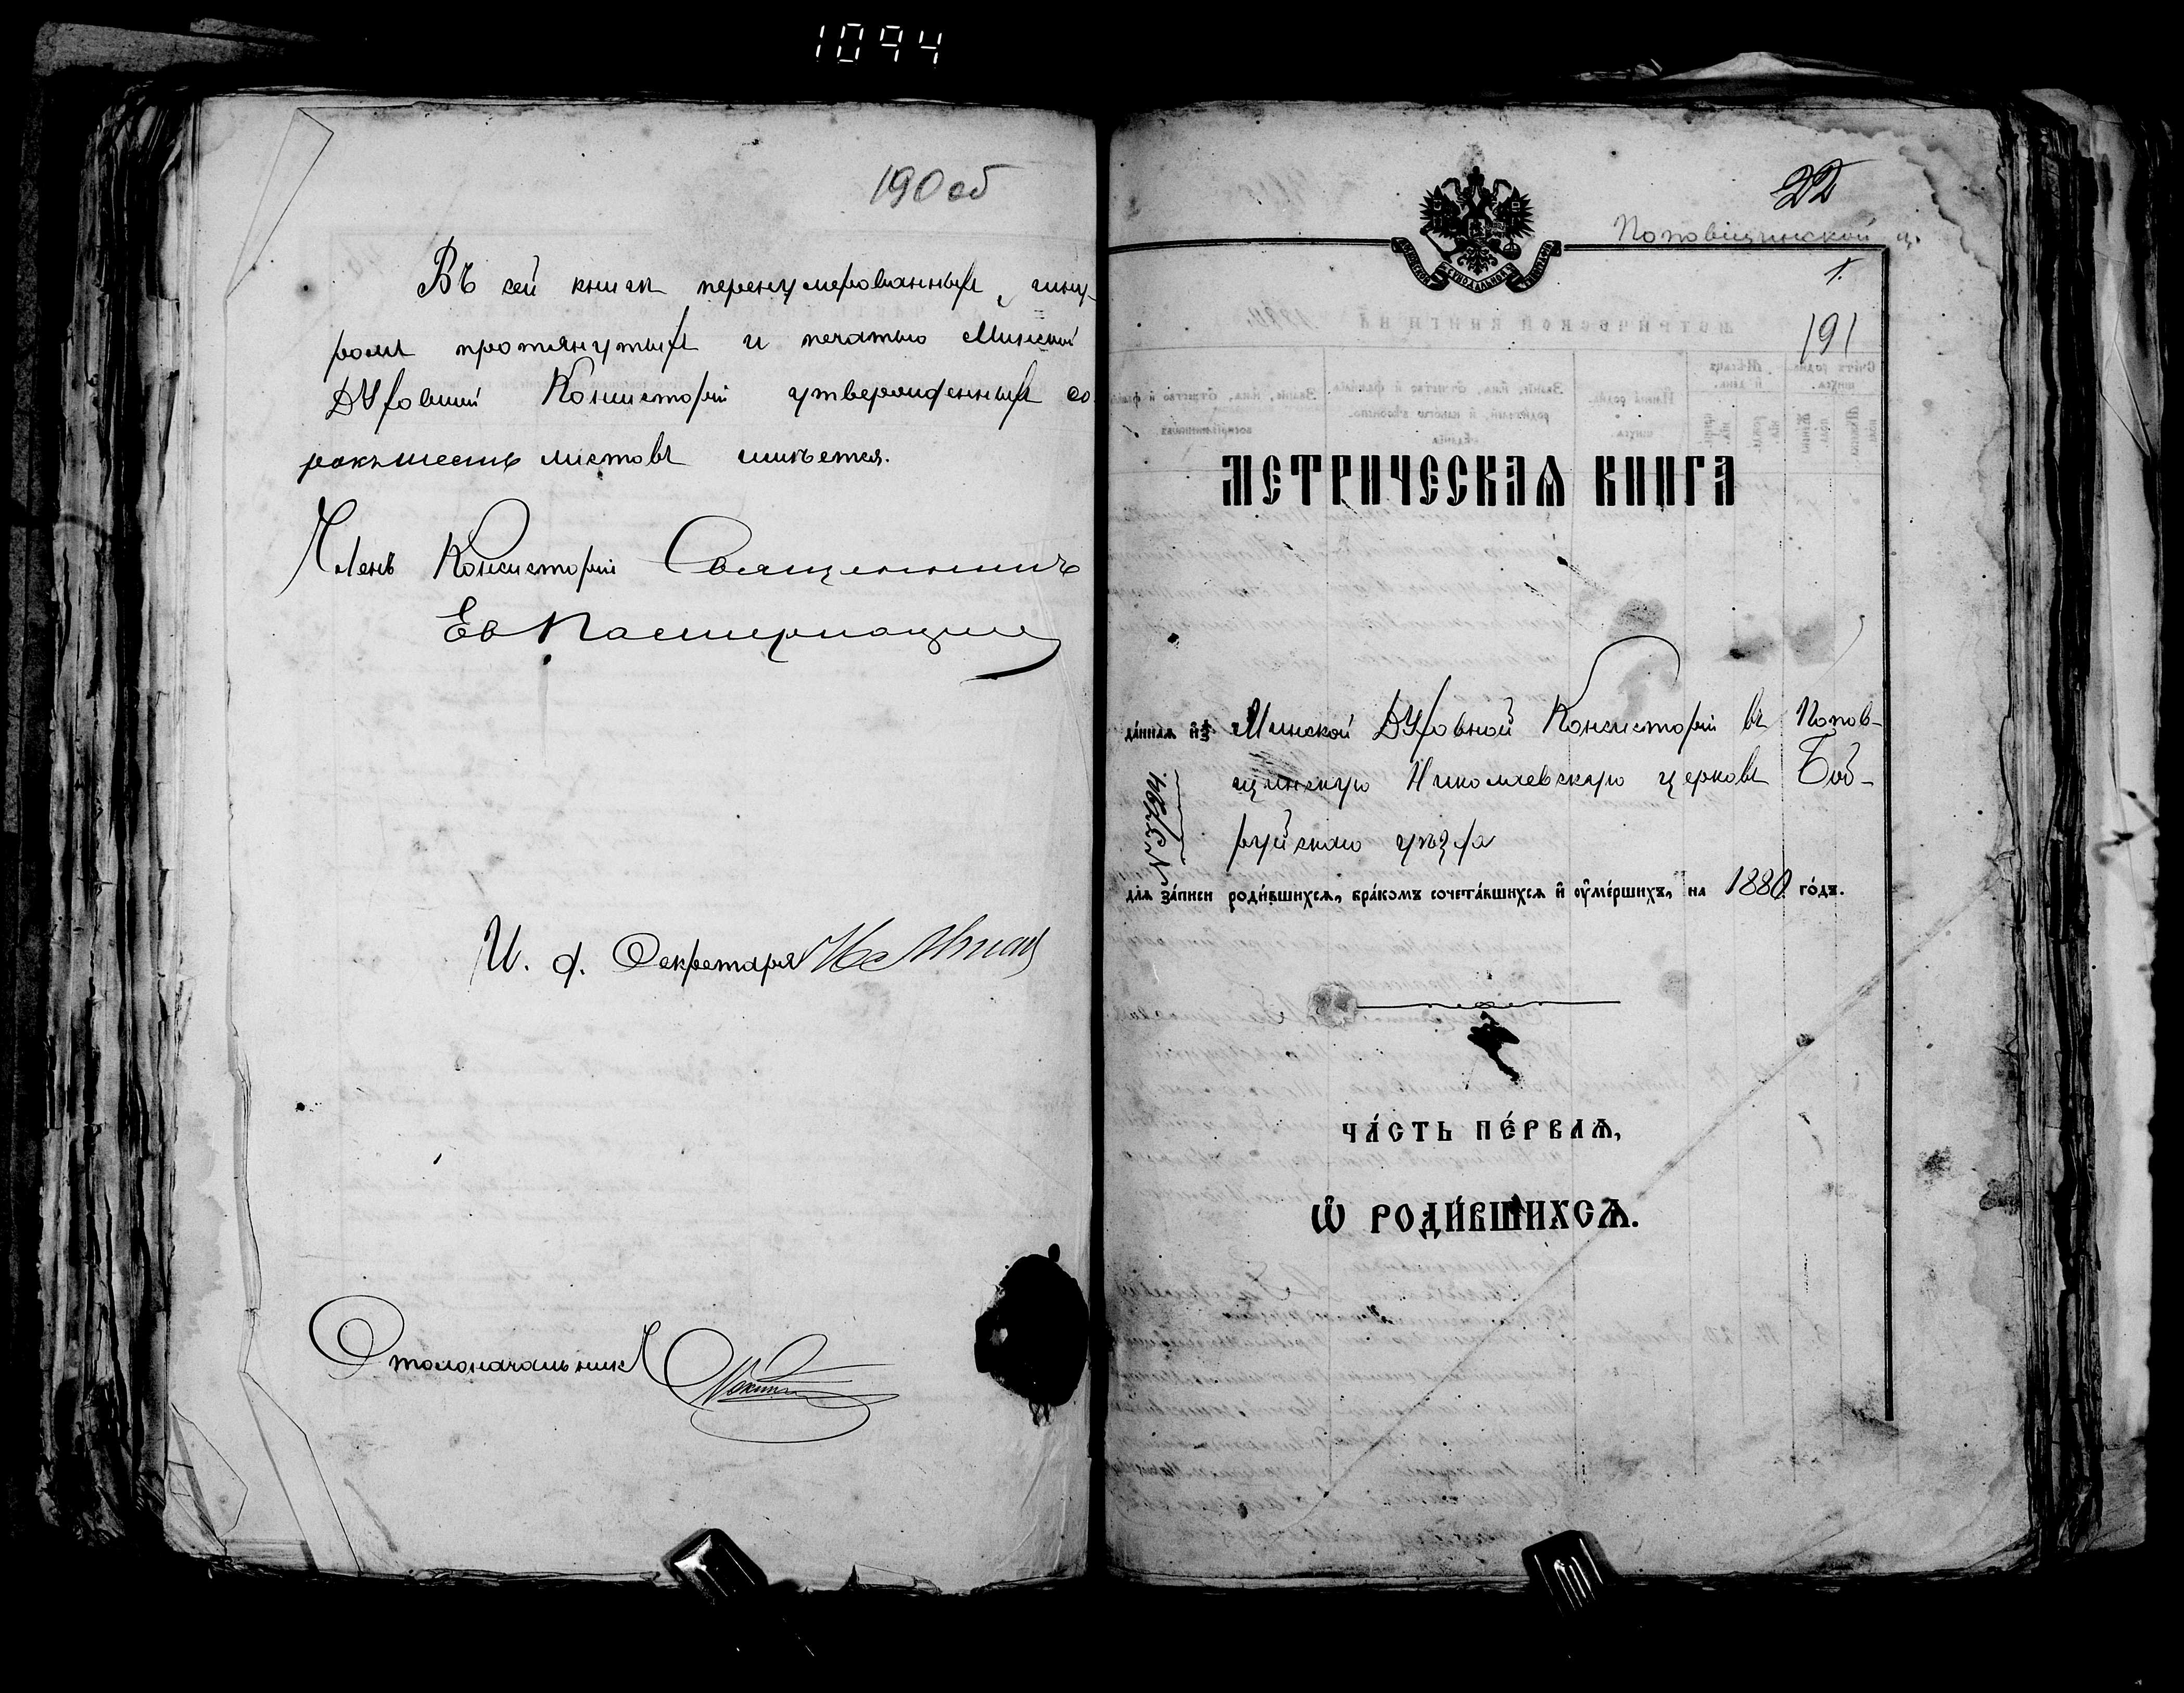 1094
190 об
Въ сей книгѣ перенумерованныхъ, шну-
ромъ протянутыхъ и печатью Минской
Духовной Консисторіи утвержденныхъ со-
рокъ шесть листовъ имѣется.
Членъ Консисторіи Священникъ
Ев
И. д. Секретаря
Столоначальникъ
22
Поповщинской ц.
1.
191
МЕТРИЧЕСКАѦ КНИГА
да́ннаѧ и҆з̾ Минской Духовной Консисторіи въ Попов-
щинскую Николаевскую церковь Боб-
руйскаго уѣзда
№ 3794
длѧ за́писи роди́вшихсѧ, бра́комъ сочета́вшихсѧ и҆ ᲂу҆ме́ршихъ, на 1880 го́дъ.
ЧА́СТЬ ПЕ́РВАѦ,
Ѡ҆ РОДИ́ВШИХСѦ.